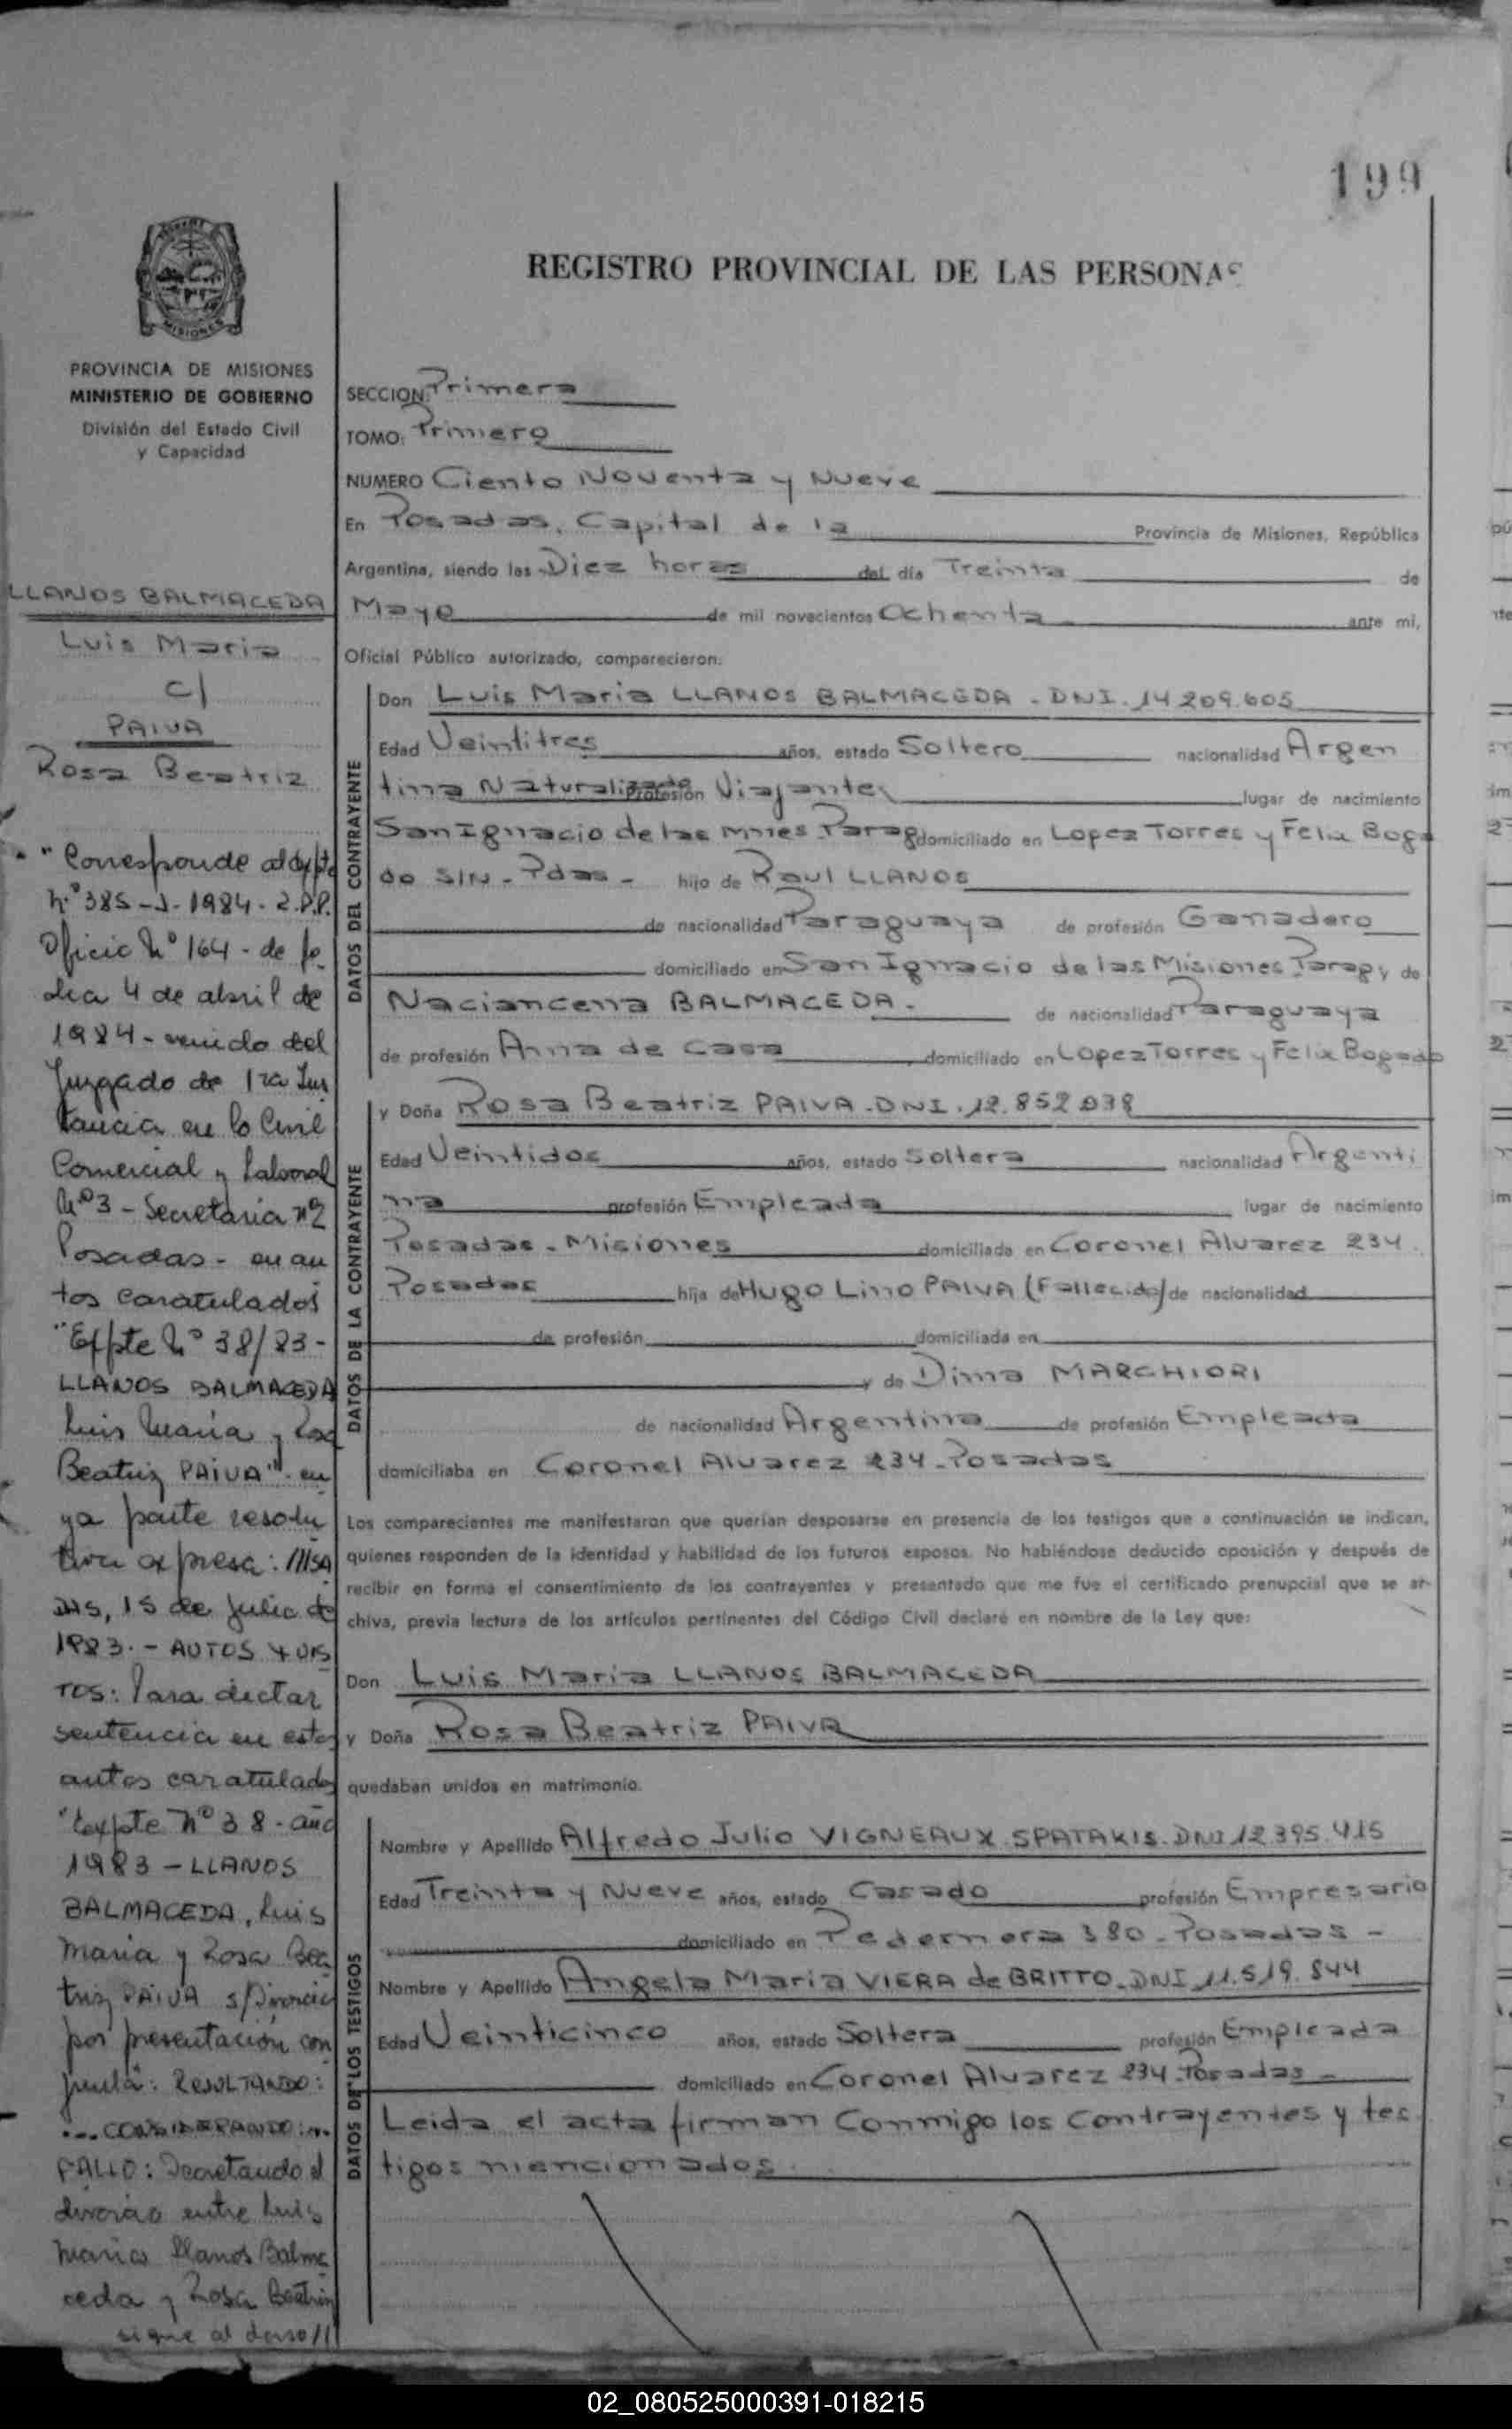 199
REGISTRO PROVINCIAL DE LAS PERSONAS
MISIONES
PROVINCIA DE MISIONES
MINISTERIO DE GOBIERNO
División del Estado Civil
y Capacidad
LLANOS BALMACEDA
Luis Maria
c/
PAIVA
Rosa Beatriz
"Corresponde al expte
Nº 385-J-1984-2.P.P.
Oficio Nº 164 - de fe
cha 4 de abril de
1984 - venido del
Juzgado de 1ra Ins
tancia en lo Civil
Comercial y Laboral
Nº 3 - Secretaria nº 2
Posadas - en au
tos caratulados
"Expte Nº 38/83 -
LLANOS BALMACEDA
Luis Maria y Rosa
Beatriz PAIVA" - cu
ya parte resolu
tiva expresa:
15 de Julio de
1983. - AUTOS Y VIS
TOS: Para dictar
sentencia en estos
autos caratulados
"Expte Nº 38 - año
1983 - LLANOS
BALMACEDA, Luis
Maria y Rosa Bea
triz PAIVA s/Divorcio
por presentación con
junta: RESULTANDO:
... CONSIDERANDO: ...
FALLO: Decretando el
divorcio entre Luis
Maria Llanos Balma
ceda y Rosa Beatriz
sigue al dorso //
SECCION: Primera
TOMO: Primero
NUMERO Ciento Noventa y Nueve
En Posadas, Capital de la Provincia de Misiones, República
Argentina, siendo las Diez horas del día Treinta de
Mayo de mil novecientos Ochenta ante mi,
Oficial Público autorizado, comparecieron:
DATOS DEL CONTRAYENTE
Don Luis Maria LLANOS BALMACEDA - DNI. 14 209.605
Edad Veintitres años, estado Soltero nacionalidad Argen
tina Naturalizado profesión Viajante lugar de nacimiento
San Ignacio de las Mnes. Parag domiciliado en Lopez Torres y Felix Boga
do S/N - Pdas - hijo de Raul LLANOS
de nacionalidad Paraguaya de profesión Ganadero
domiciliado en San Ignacio de las Misiones Parag y de
Naciancena BALMACEDA - de nacionalidad Paraguaya
de profesión Ama de Casa, domiciliado en Lopez Torres y Felix Bogado
DATOS DE LA CONTRAYENTE
y Doña Rosa Beatriz PAIVA - DNI. 12.852.038
Edad Veintidos años, estado Soltera nacionalidad Argenti
na profesión Empleada lugar de nacimiento
Posadas - Misiones domiciliada en Coronel Alvarez 234.
Posadas hija de Hugo Lino PAIVA (Fallecido) de nacionalidad
de profesión domiciliada en
y de Dima MARCHIORI
de nacionalidad Argentina de profesión Empleada
domiciliaba en Coronel Alvarez 234 - Posadas
Los comparecientes me manifestaron que querían desposarse en presencia de los testigos que a continuación se indican,
quienes responden de la identidad y habilidad de los futuros esposos. No habiéndose deducido oposición y después de
recibir en forma el consentimiento de los contrayentes y presentado que me fue el certificado prenupcial que se ar-
chiva, previa lectura de los artículos pertinentes del Código Civil declaré en nombre de la Ley que:
Don Luis Maria LLANOS BALMACEDA
y Doña Rosa Beatriz PAIVA
quedaban unidos en matrimonio.
DATOS DE LOS TESTIGOS
Nombre y Apellido Alfredo Julio VIGNEAUX SPATAKIS. DNI 12 395.415
Edad Treinta y Nueve años, estado Casado profesión Empresario
domiciliado en Pedernera 380 - Posadas -
Nombre y Apellido Angela Maria VIERA de BRITTO - DNI 11.519.844
Edad Veinticinco años, estado Soltera profesión Empleada
domiciliado en Coronel Alvarez 234 - Posadas -
Leida el acta firman conmigo los contrayentes y tes
tigos mencionados.
02_080525000391-018215